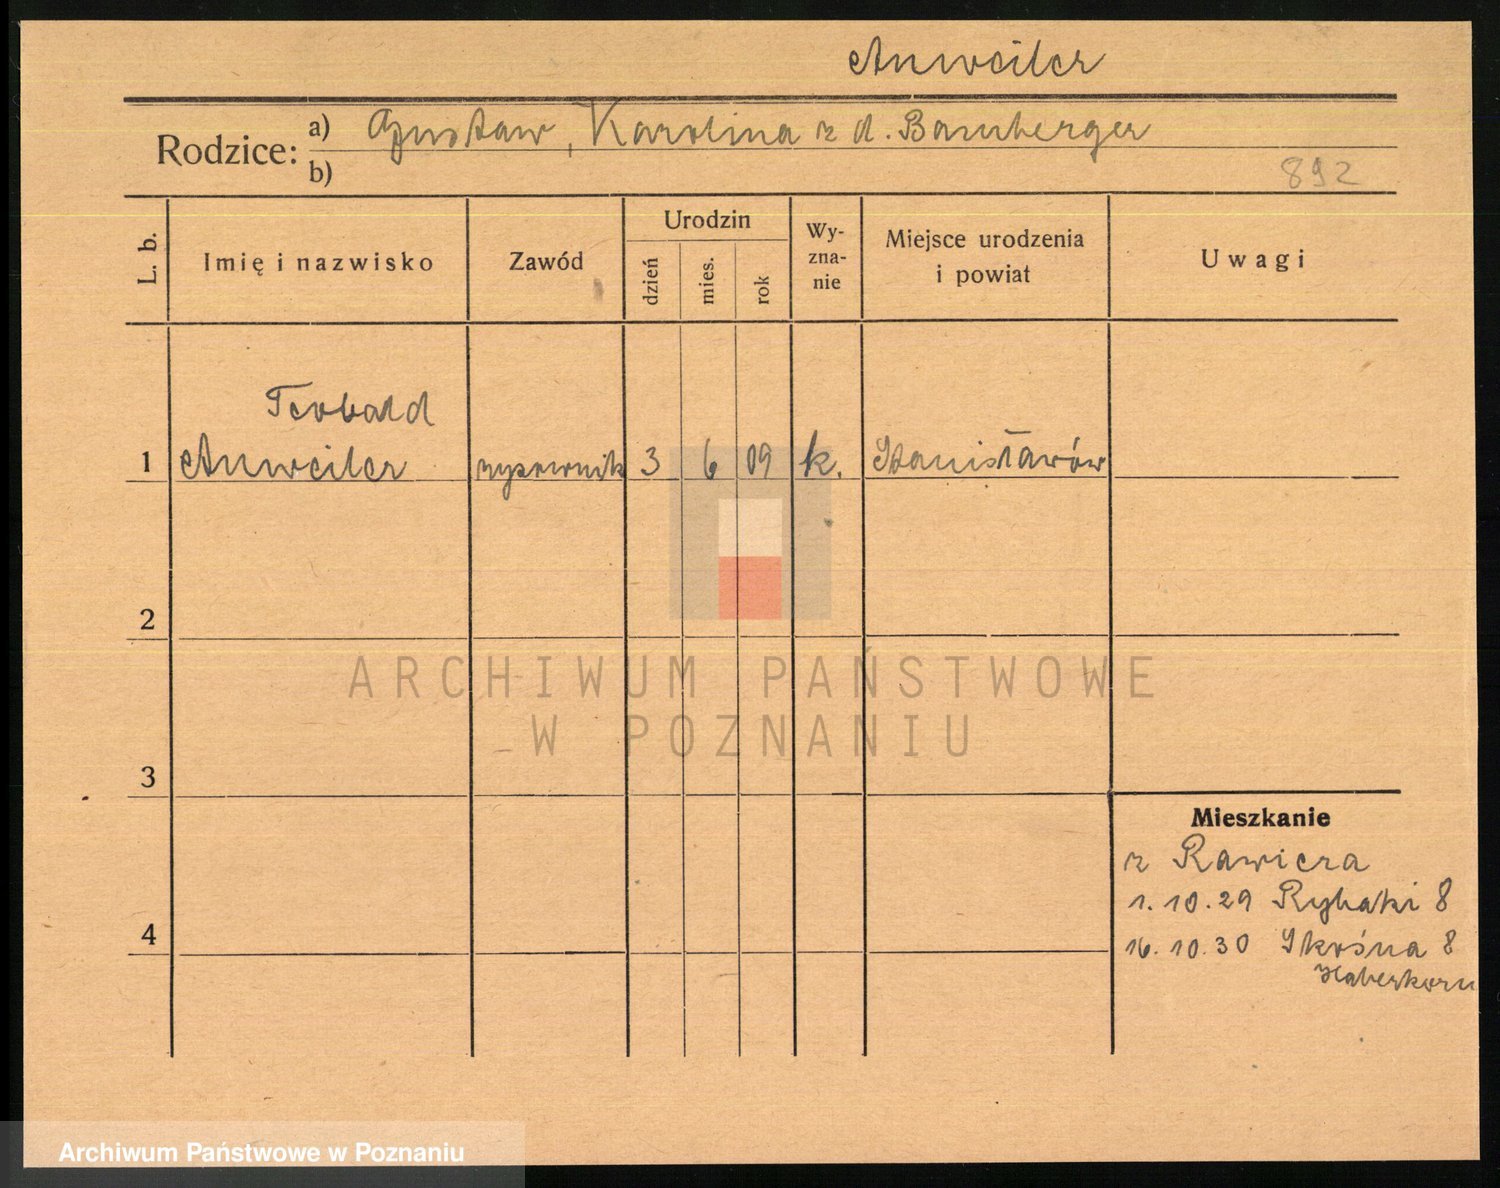 Anweiler
Rodzice: a) Gustaw, Karolina z d. Bamberger
b)
892
L. b.
Imię i nazwisko
Zawód
Urodzin
dzień
mies.
rok
Wy-
zna-
nie
Miejsce urodzenia
i powiat
Uwagi
Teobald
1 Anweiler rysownik 3 6 09 k. Stanisławów
2
3
4
ARCHIWUM PAŃSTWOWE
W POZNANIU
Mieszkanie
z Rawicza
1.10.29 Rybaki 8
16.10.30 Skośna 8
Haberkorn
Archiwum Państwowe w Poznaniu